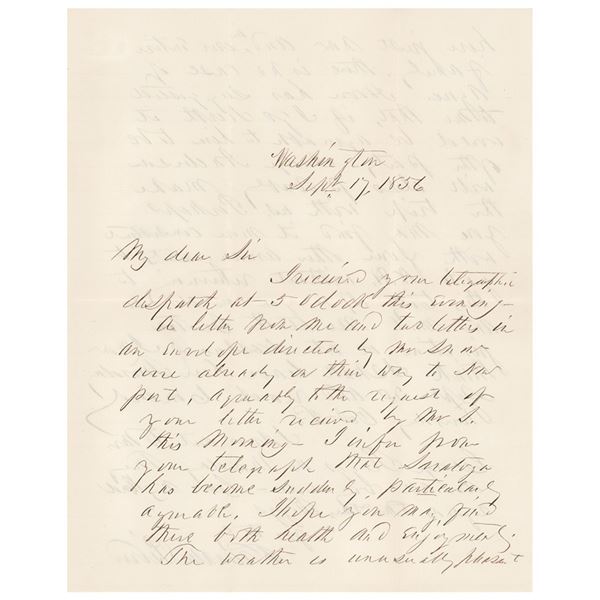 Washington
Sept 17, 1856
My dear Sir
I recieved your telegraphic
despatch at 5 Oclock this Evening-
A letter from me and two letters in
an Envelope directed by Mr Snow
were already on their way to New
port, agreeably to the request of
your letter recieved by Mr S.
this Morning- I infer from
your telegraph that Saratoga
has become suddenly particularly
agreeable. I hope you may find
there both health and enjoyment;
The weather is unusually pleasant